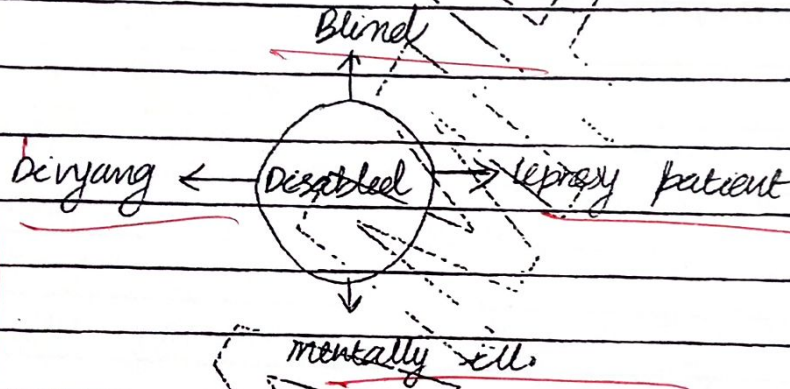 Blind
Divyang Disabled Leprosy patient
mentally ill.